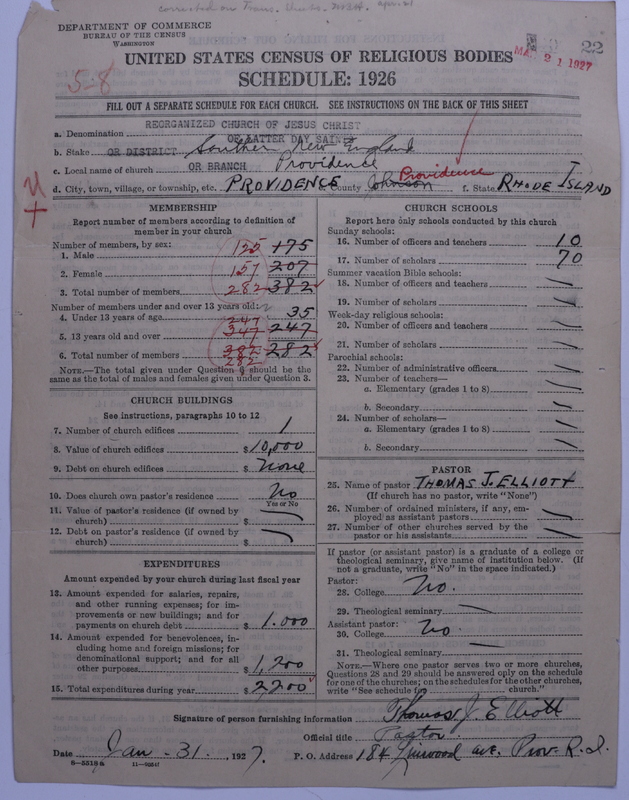 corrected on Trans.
DEPARTMENT OF COMMERCE
BUREAU OF THE CENSUS
WASHINGTON
22
MAR 21 1927
5-8
UNITED STATES CENSUS OF RELIGIOUS BODIES
SCHEDULE: 1926
FILL OUT A SEPARATE SCHEDULE FOR EACH CHURCH. SEE INSTRUCTIONS ON THE BACK OF THIS SHEET
REORGANIZED CHURCH OF JESUS CHRIST
a. Denomination OF LATTER DAY SAINTS
b. Stake OR DISTRICT Southern New England
c. Local name of church OR BRANCH Providence
d. City, town, village, or township, etc. PROVIDENCE e. County Johnson Providence f. State RHODE ISLAND
MEMBERSHIP
Report number of members according to definition of
member in your church
Number of members, by sex:
1. Male 125 175
2. Female 157 207
3. Total number of members 282 382
Number of members under and over 13 years old:
4. Under 13 years of age 35
247
5. 13 years old and over 347 247
6. Total number of members 382 282
282
NOTE.—The total given under Question 6 should be the
same as the total of males and females given under Question 3.
CHURCH BUILDINGS
See instructions, paragraphs 10 to 12
7. Number of church edifices 1
8. Value of church edifices $10,000
9. Debt on church edifices $None
10. Does church own pastor's residence No
Yes or No
11. Value of pastor's residence (if owned by
church) $
12. Debt on pastor's residence (if owned by
church) $
EXPENDITURES
Amount expended by your church during last fiscal year
13. Amount expended for salaries, repairs,
and other running expenses; for im-
provements or new buildings; and for
payments on church debt $1.000
14. Amount expended for benevolences, in-
cluding home and foreign missions; for
denominational support; and for all
other purposes $1,200
15. Total expenditures during year $2200
CHURCH SCHOOLS
Report here only schools conducted by this church
Sunday schools:
16. Number of officers and teachers 10
17. Number of scholars 70
Summer vacation Bible schools:
18. Number of officers and teachers
19. Number of scholars
Week-day religious schools:
20. Number of officers and teachers
21. Number of scholars
Parochial schools:
22. Number of administrative officers
23. Number of teachers—
a. Elementary (grades 1 to 8)
b. Secondary
24. Number of scholars—
a. Elementary (grades 1 to 8)
b. Secondary
PASTOR
25. Name of pastor THOMAS J. ELLIOTT
(If church has no pastor, write "None")
26. Number of ordained ministers, if any, em-
ployed as assistant pastors
27. Number of other churches served by the
pastor or his assistants
If pastor (or assistant pastor) is a graduate of a college or
theological seminary, give name of institution below. (If
not a graduate, write "No" in the space indicated.)
Pastor:
28. College No.
29. Theological seminary
Assistant pastor:
30. College No.
31. Theological seminary
NOTE.—Where one pastor serves two or more churches,
Questions 28 and 29 should be answered only on the schedule
for one of the churches; on the schedules for the other churches,
write "See schedule for church."
Signature of person furnishing information Thomas J. Elliott
Official title Pastor
Date Jan. 31, 1927. P. O. Address 184 ave. Prov. R. I.
8—5518a 11—9254